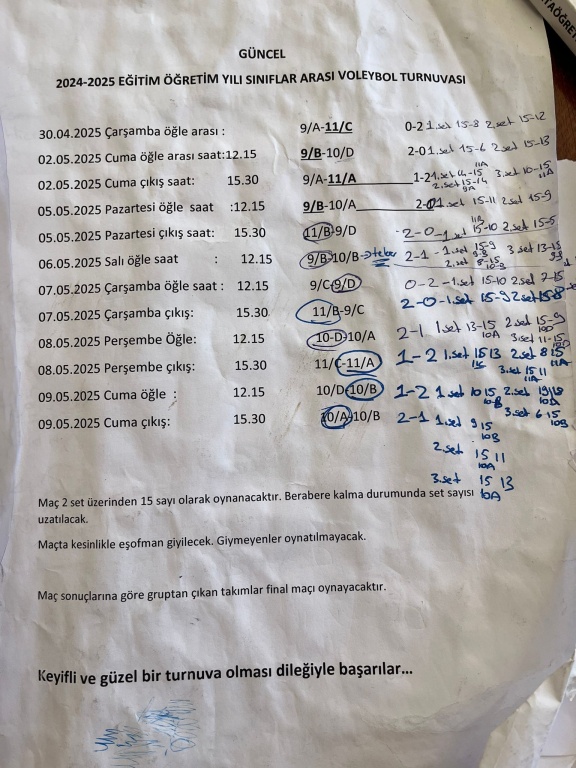 TAÖĞRET
GÜNCEL
2024-2025 EĞİTİM ÖĞRETİM YILI SINIFLAR ARASI VOLEYBOL TURNUVASI
30.04.2025 Çarşamba öğle arası : 9/A-11/C 0-2 1.set 15-8 2.set 15-12
02.05.2025 Cuma öğle arası saat:12.15 9/B-10/D 2-0 1.set 15-6 2.set 15-13
02.05.2025 Cuma çıkış saat: 15.30 9/A-11/A 1-2 1.set 14-15 11A 3.set 10-15 11A
2.set 15-14 9A
05.05.2025 Pazartesi öğle saat :12.15 9/B-10/A 2-0 1.set 15-11 2.set 15-9
05.05.2025 Pazartesi çıkış saat: 15.30 11/B-9/D 2-0-1.set 11B 15-10 2.set 15-5
06.05.2025 Salı öğle saat : 12.15 9/B-10/B 2-1-1.set 15-9 3.set 13-15
2.set 8-15
07.05.2025 Çarşamba öğle saat : 12.15 9/C-9/D 0-2-1.set 15-10 2.set 7-15
07.05.2025 Çarşamba çıkış: 15.30 11/B-9/C 2-0-1.set 15-9 2.set 15-8
08.05.2025 Perşembe Öğle: 12.15 10-D-10/A 2-1 1.set 13-15 10A 2.set 15-9 10D
3.set 11-15 10D
08.05.2025 Perşembe çıkış: 15.30 11/C-11/A 1-2 1.set 15 13 2.set 8 15 11A
3.set 15 11 11A
09.05.2025 Cuma öğle : 12.15 10/D-10/B 1-2 1.set 10 15 10-B 2.set 10A
09.05.2025 Cuma çıkış: 15.30 10/A-10/B 2-1 1.set 9 15 10B 3.set 6 15 10B
2.set 15 11 10A
3.set 15 13 10A
Maç 2 set üzerinden 15 sayı olarak oynanacaktır. Berabere kalma durumunda set sayısı
uzatılacak.
Maçta kesinlikle eşofman giyilecek. Giymeyenler oynatılmayacak.
Maç sonuçlarına göre gruptan çıkan takımlar final maçı oynayacaktır.
Keyifli ve güzel bir turnuva olması dileğiyle başarılar...